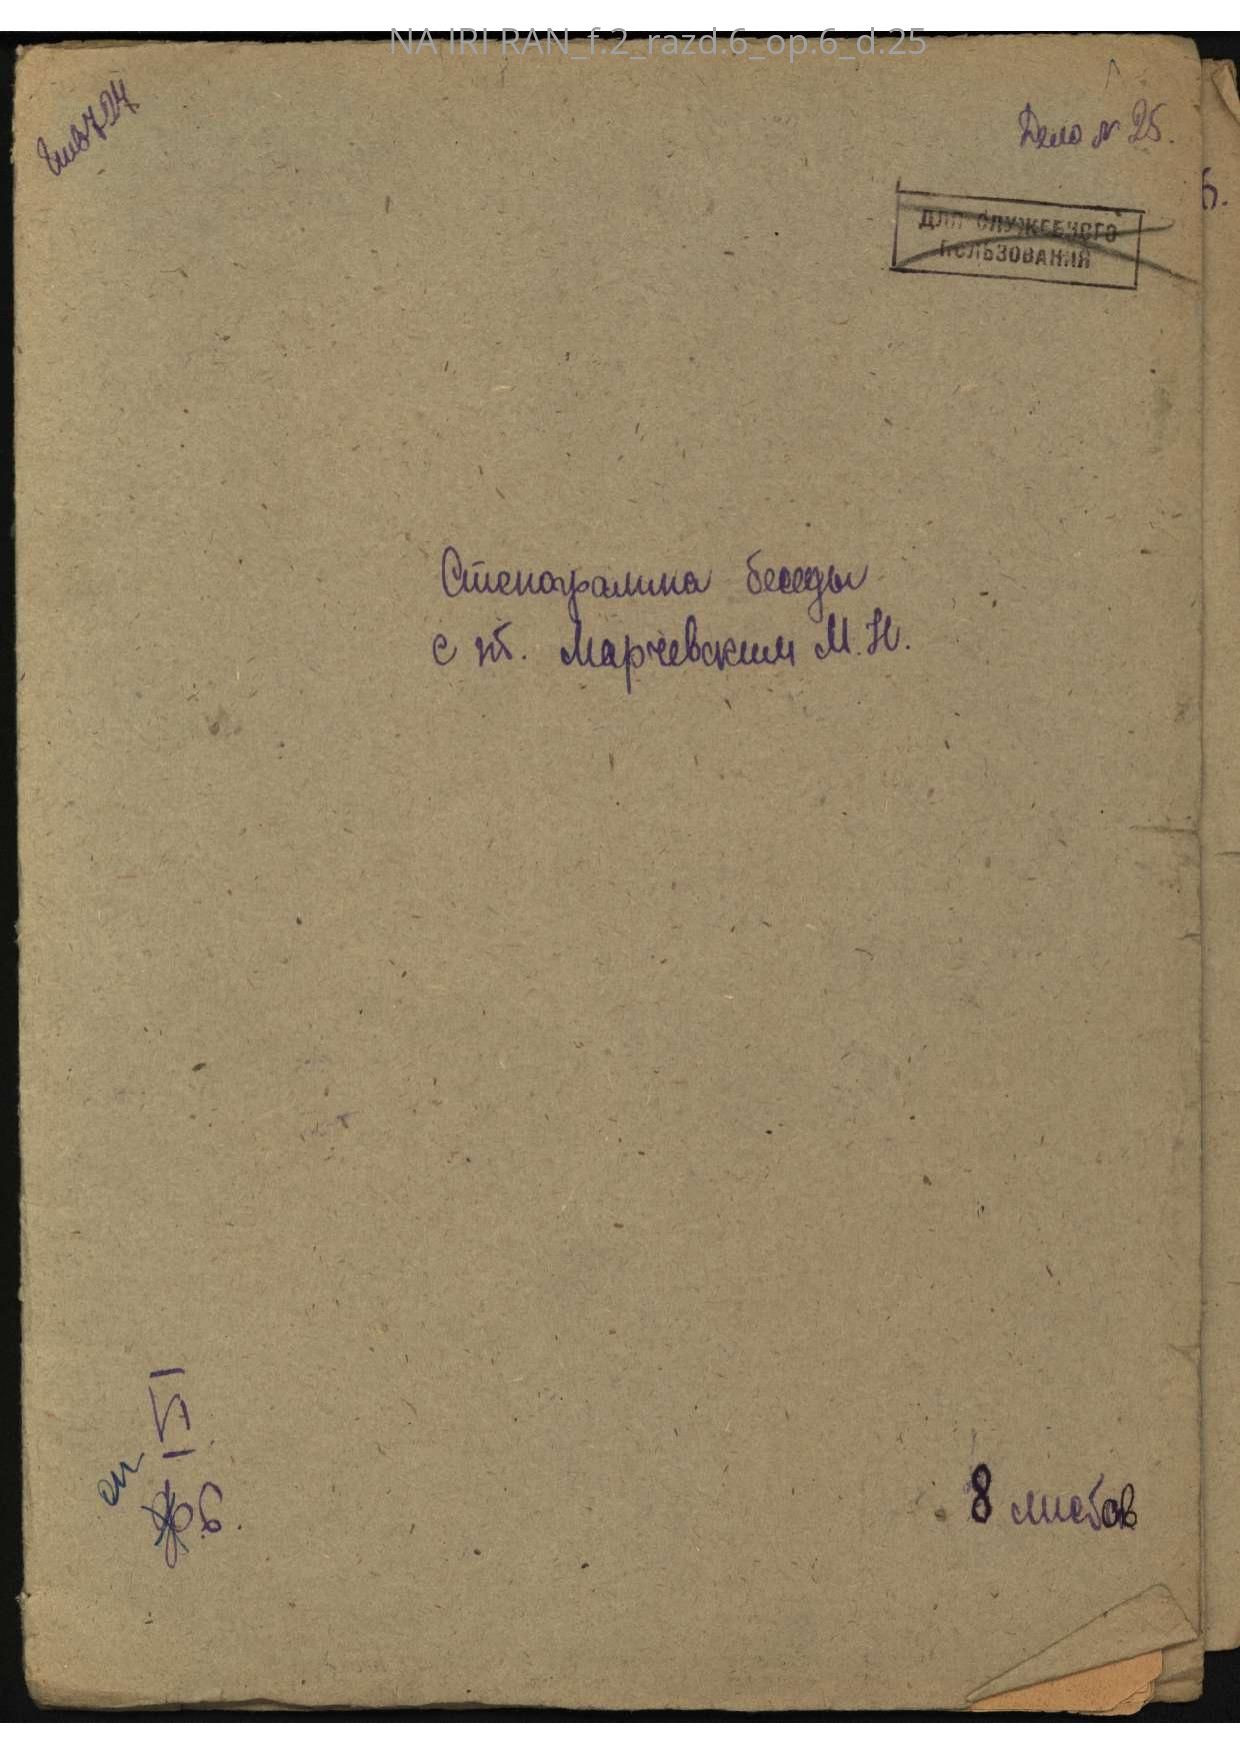 NA IRI RAN_f.2_razd.6_op.6_d.25
Дело № 25.
ДЛЯ СЛУЖЕБНОГО
ПОЛЬЗОВАНИЯ
Стенограмма беседы
с т. Марчевским М.Н.
VI
оп
6.
8 листов